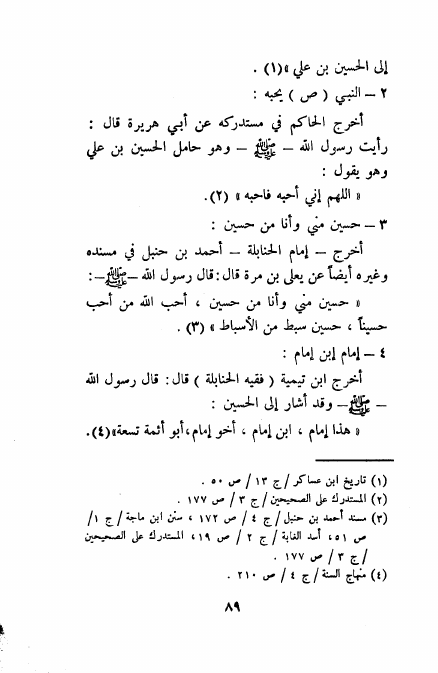 إلى الحسين بن علي »(١) .
٢ – النبي ( ص ) يحبه :
أخرج الحاكم في مستدركه عن أبي هريرة قال :
رأيت رسول الله – ﷺ – وهو حامل الحسين بن علي
وهو يقول :
« اللهم إني أحبه فاحبه » (٢).
٣ – حسين مني وأنا من حسين :
أخرج – إمام الحنابلة – أحمد بن حنبل في مسنده
وغيره أيضاً عن يعلى بن مرة قال : قال رسول الله – ﷺ – :
« حسين مني وأنا من حسين ، أحب الله من أحب
حسيناً ، حسين سبط من الأسباط » (٣) .
٤ – إمام إبن إمام :
أخرج ابن تيمية ( فقيه الحنابلة ) قال : قال رسول الله
– ﷺ – وقد أشار إلى الحسين :
« هذا إمام ، ابن إمام ، أخو إمام ، أبو أئمة تسعة»(٤).
(١) تاريخ ابن عساكر / ج ١٣ / ص ٥٠ .
(٢) المستدرك على الصحيحين / ج ٣ / ص ١٧٧ .
(٣) مسند أحمد بن حنبل / ج ٤ / ص ١٧٢ ، سنن ابن ماجة / ج ١ /
ص ٥١ ، أسد الغابة / ج ٢ / ص ١٩ ، المستدرك على الصحيحين
/ ج ٣ / ص ١٧٧ .
(٤) منهاج السنة / ج ٤ / ص ٢١٠ .
٨٩